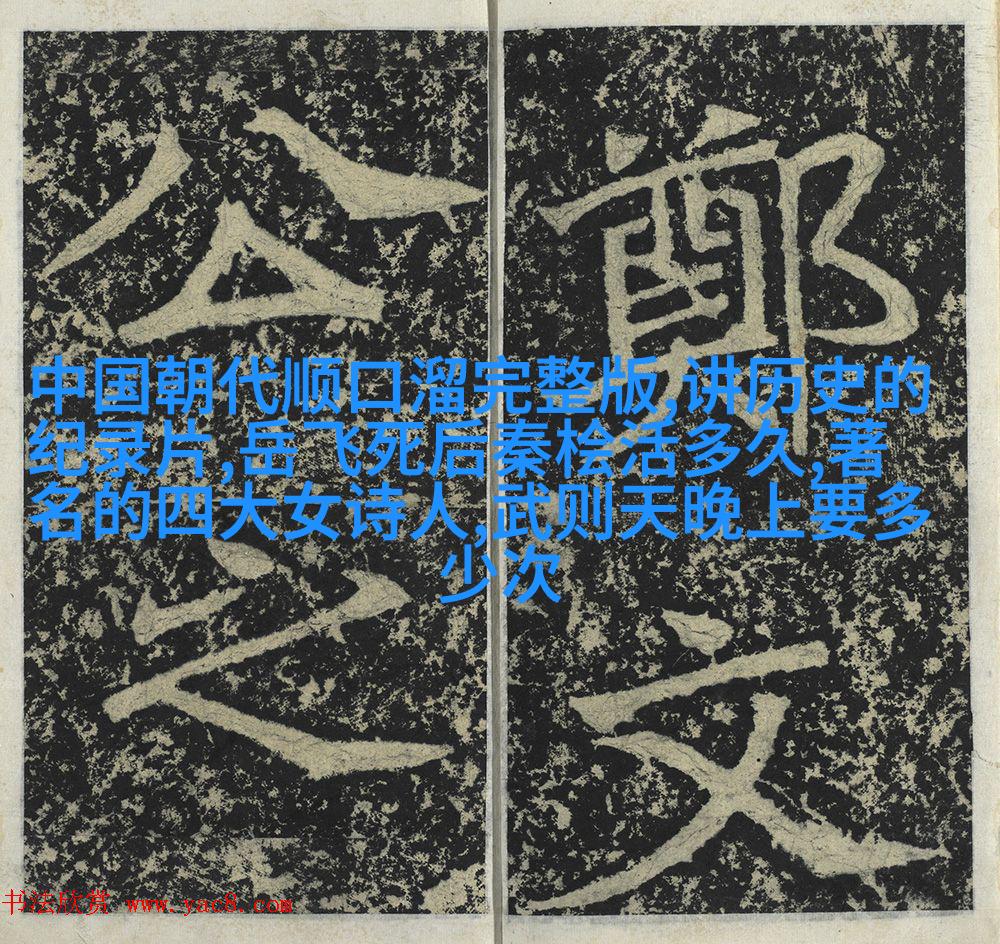 鄭
文
公
之
中国朝代顺口溜完整版,讲历史的
纪录片,岳飞死后秦桧活多久,著
名的四大女诗人,武则天晚上要多
少次
书法欣赏 www.yac8.com